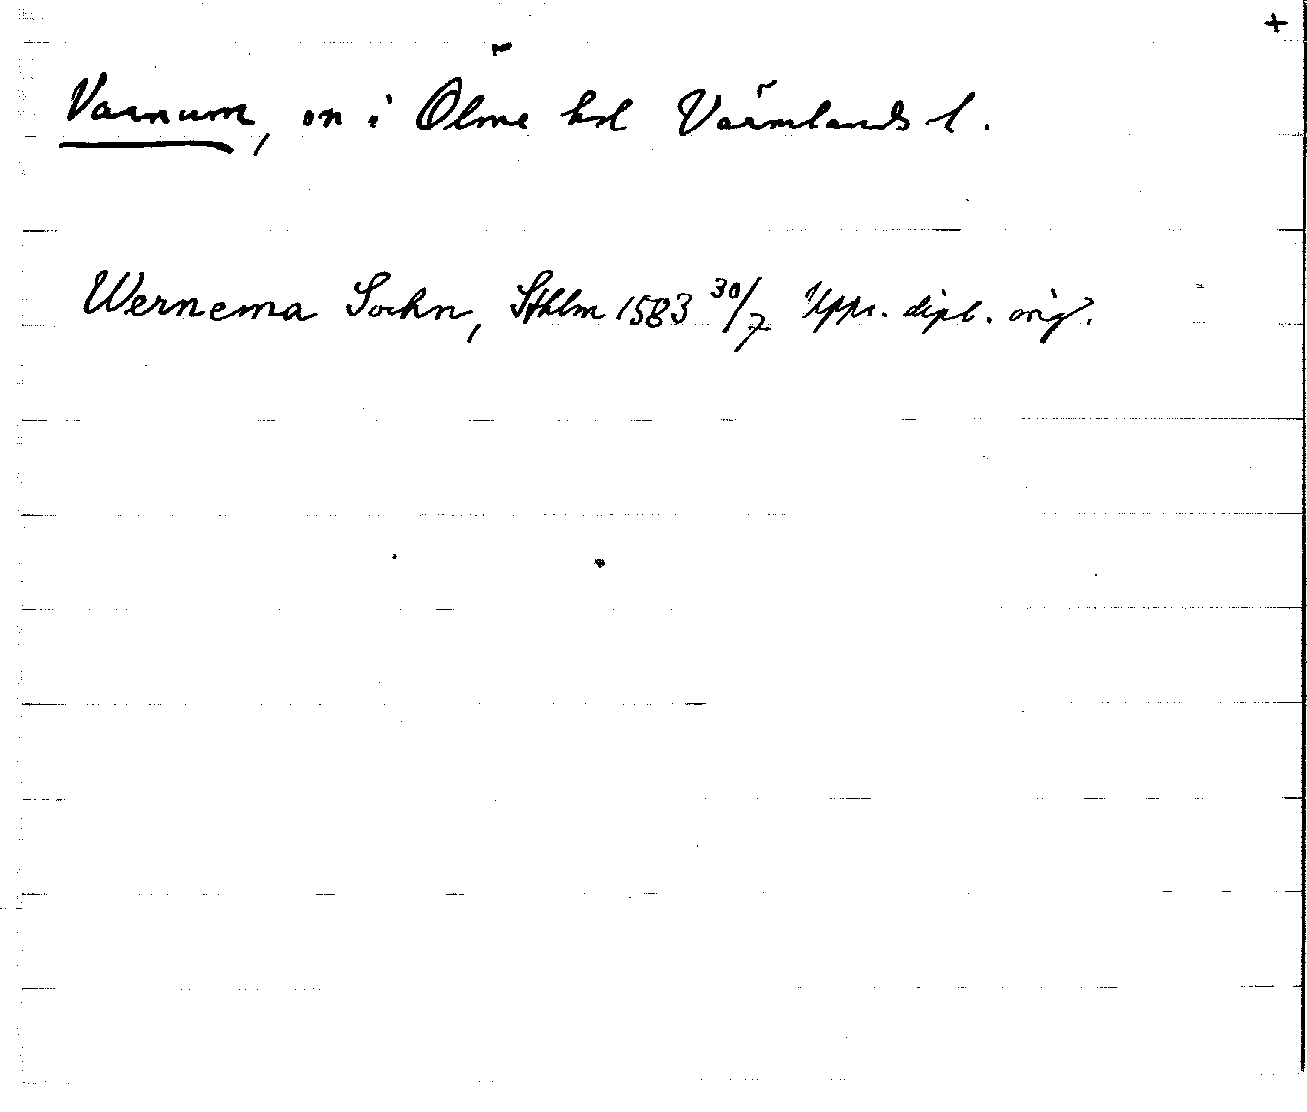 +
Varnum, sn i Ölme hd Värmlands l.
Wernema Sochn, Sthlm 1583 30/7 Upps. dipl. orig.